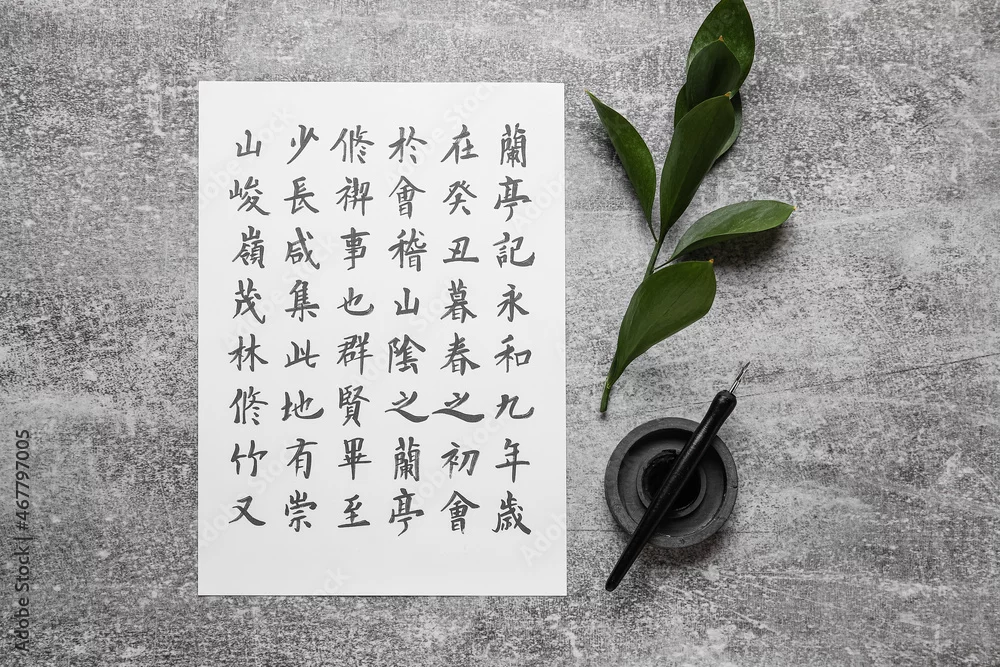 蘭亭記永和九年歲
在癸丑暮春之初會
於會稽山陰之蘭亭
修禊事也群賢畢至
少長咸集此地有崇
山峻嶺茂林修竹又
Adobe Stock | #467797005